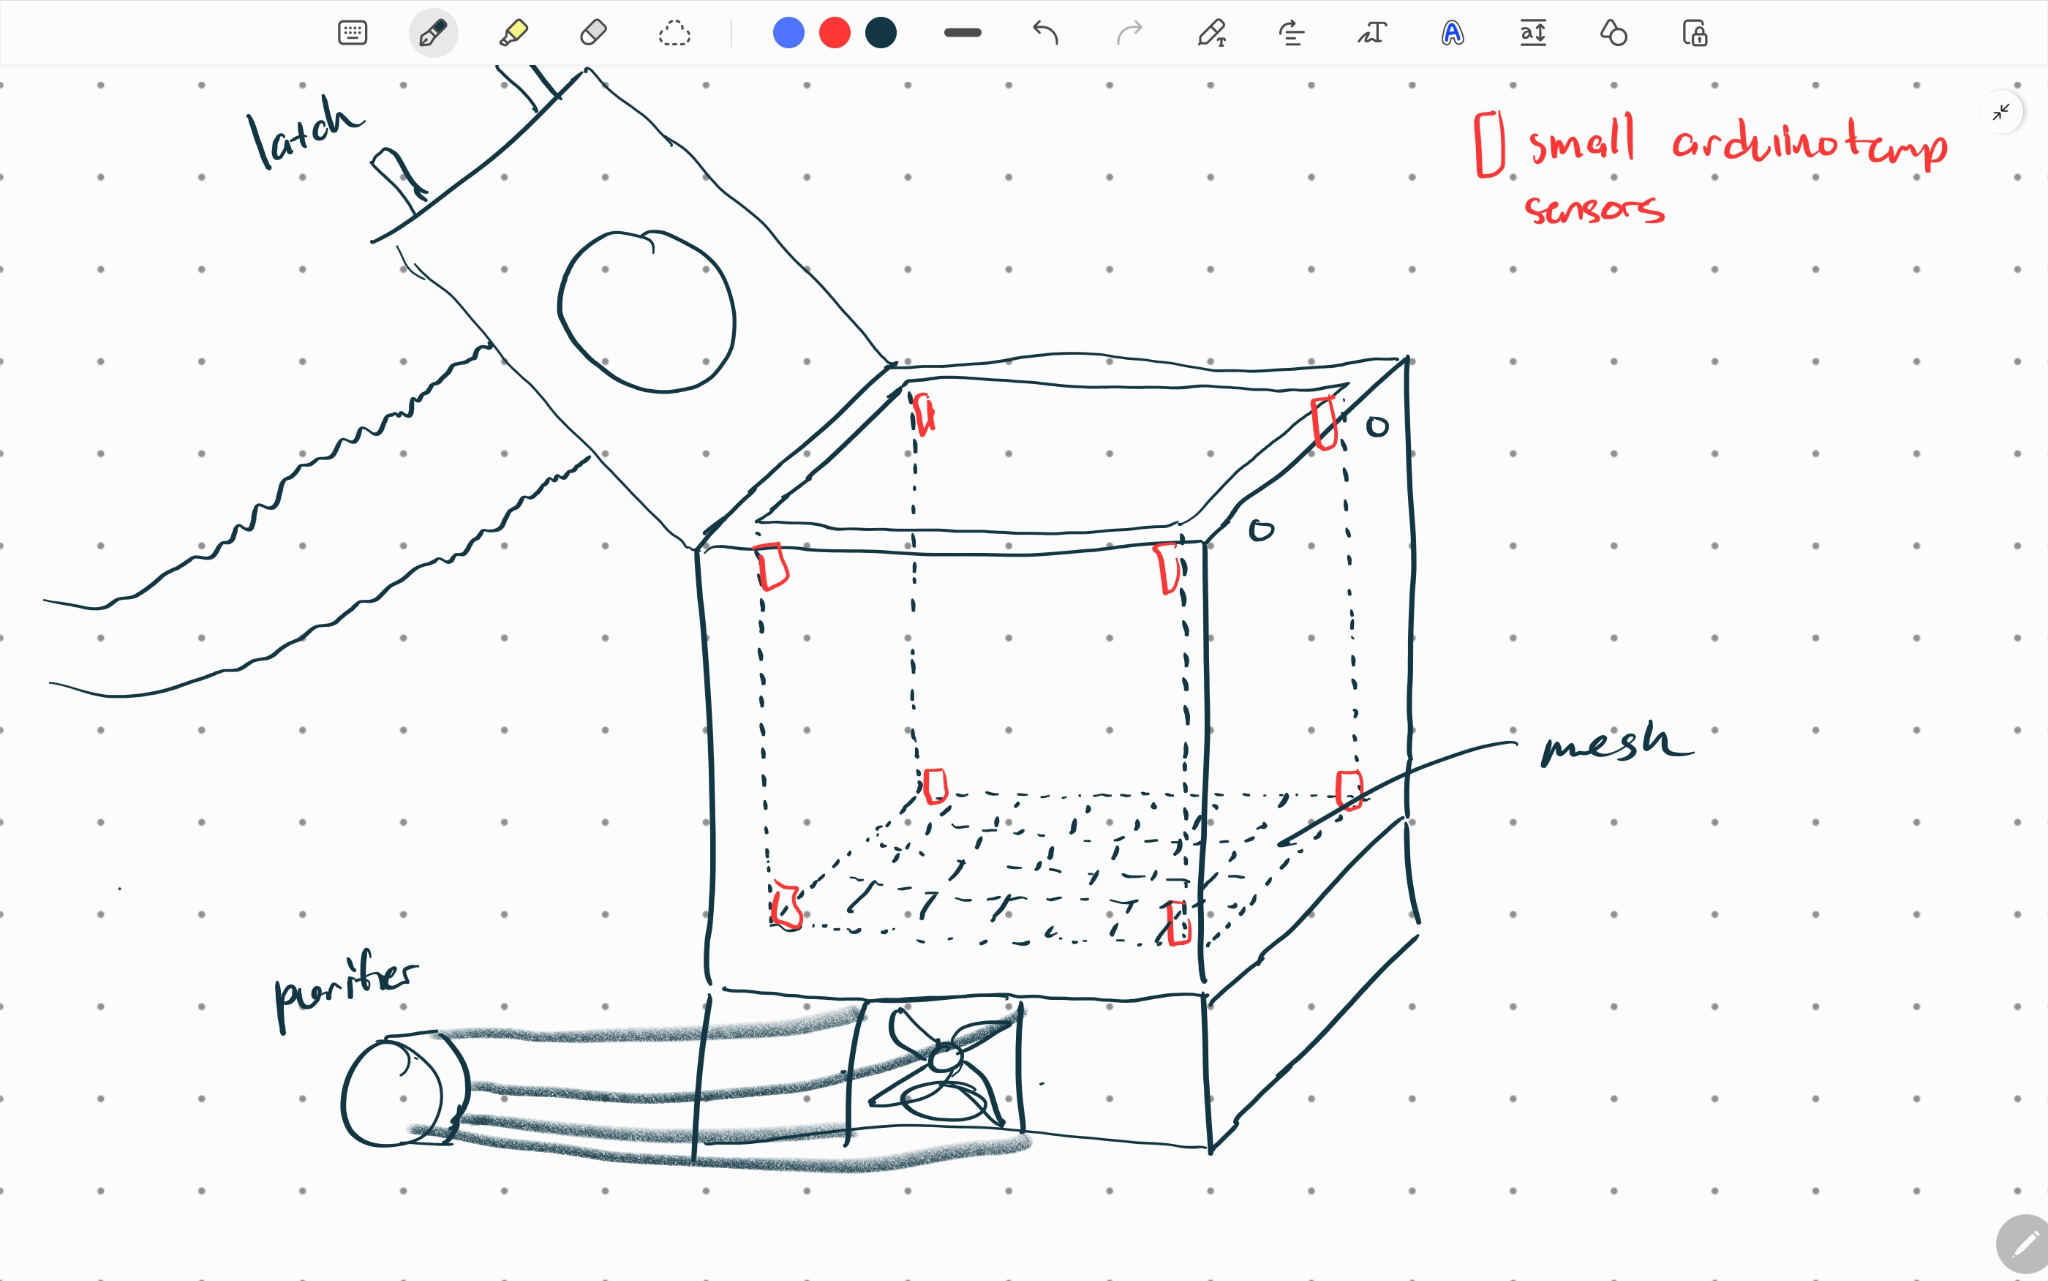 latch
small arduino temp
sensors
mesh
purifier